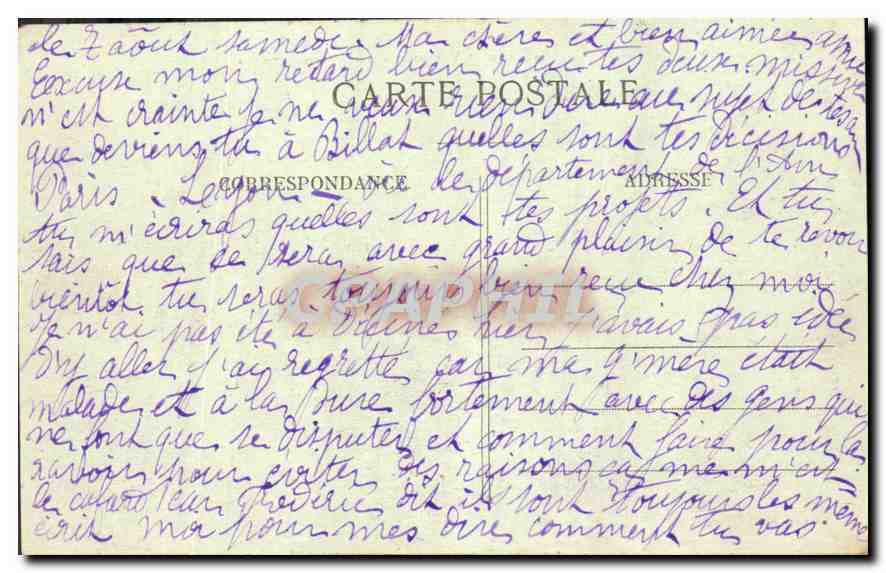 le 7 août samedi. Ma chère et bien aimée amie
Excuse mon retard bien reçu tes deux missives
CARTE POSTALE
n'est crainte je ne veux rien dire au sujet de tes
que deviens tu à Billat quelles sont tes décisions
Paris - Leyon - ou le département de l'Ain
CORRESPONDANCE
ADRESSE
tu m'écriras quelles sont tes projets. Et tu
sais que se sera avec grand plaisir de te revoir
bientôt tu seras toujour bien reçue chez moi
CPAPHIL
Je n'ai pas été à hier j'avais pas idée
d'y aller j'ai regretté car ma g'mère était
malade et à la dure fortement avec des gens qui
ne font que se disputer et comment faire pour la
savoir pour éviter des raisons ça me m'est
le cafard car Frédéric dit ils sont toujours les mêmes
écrit moi pour mes dire comment tu vas.